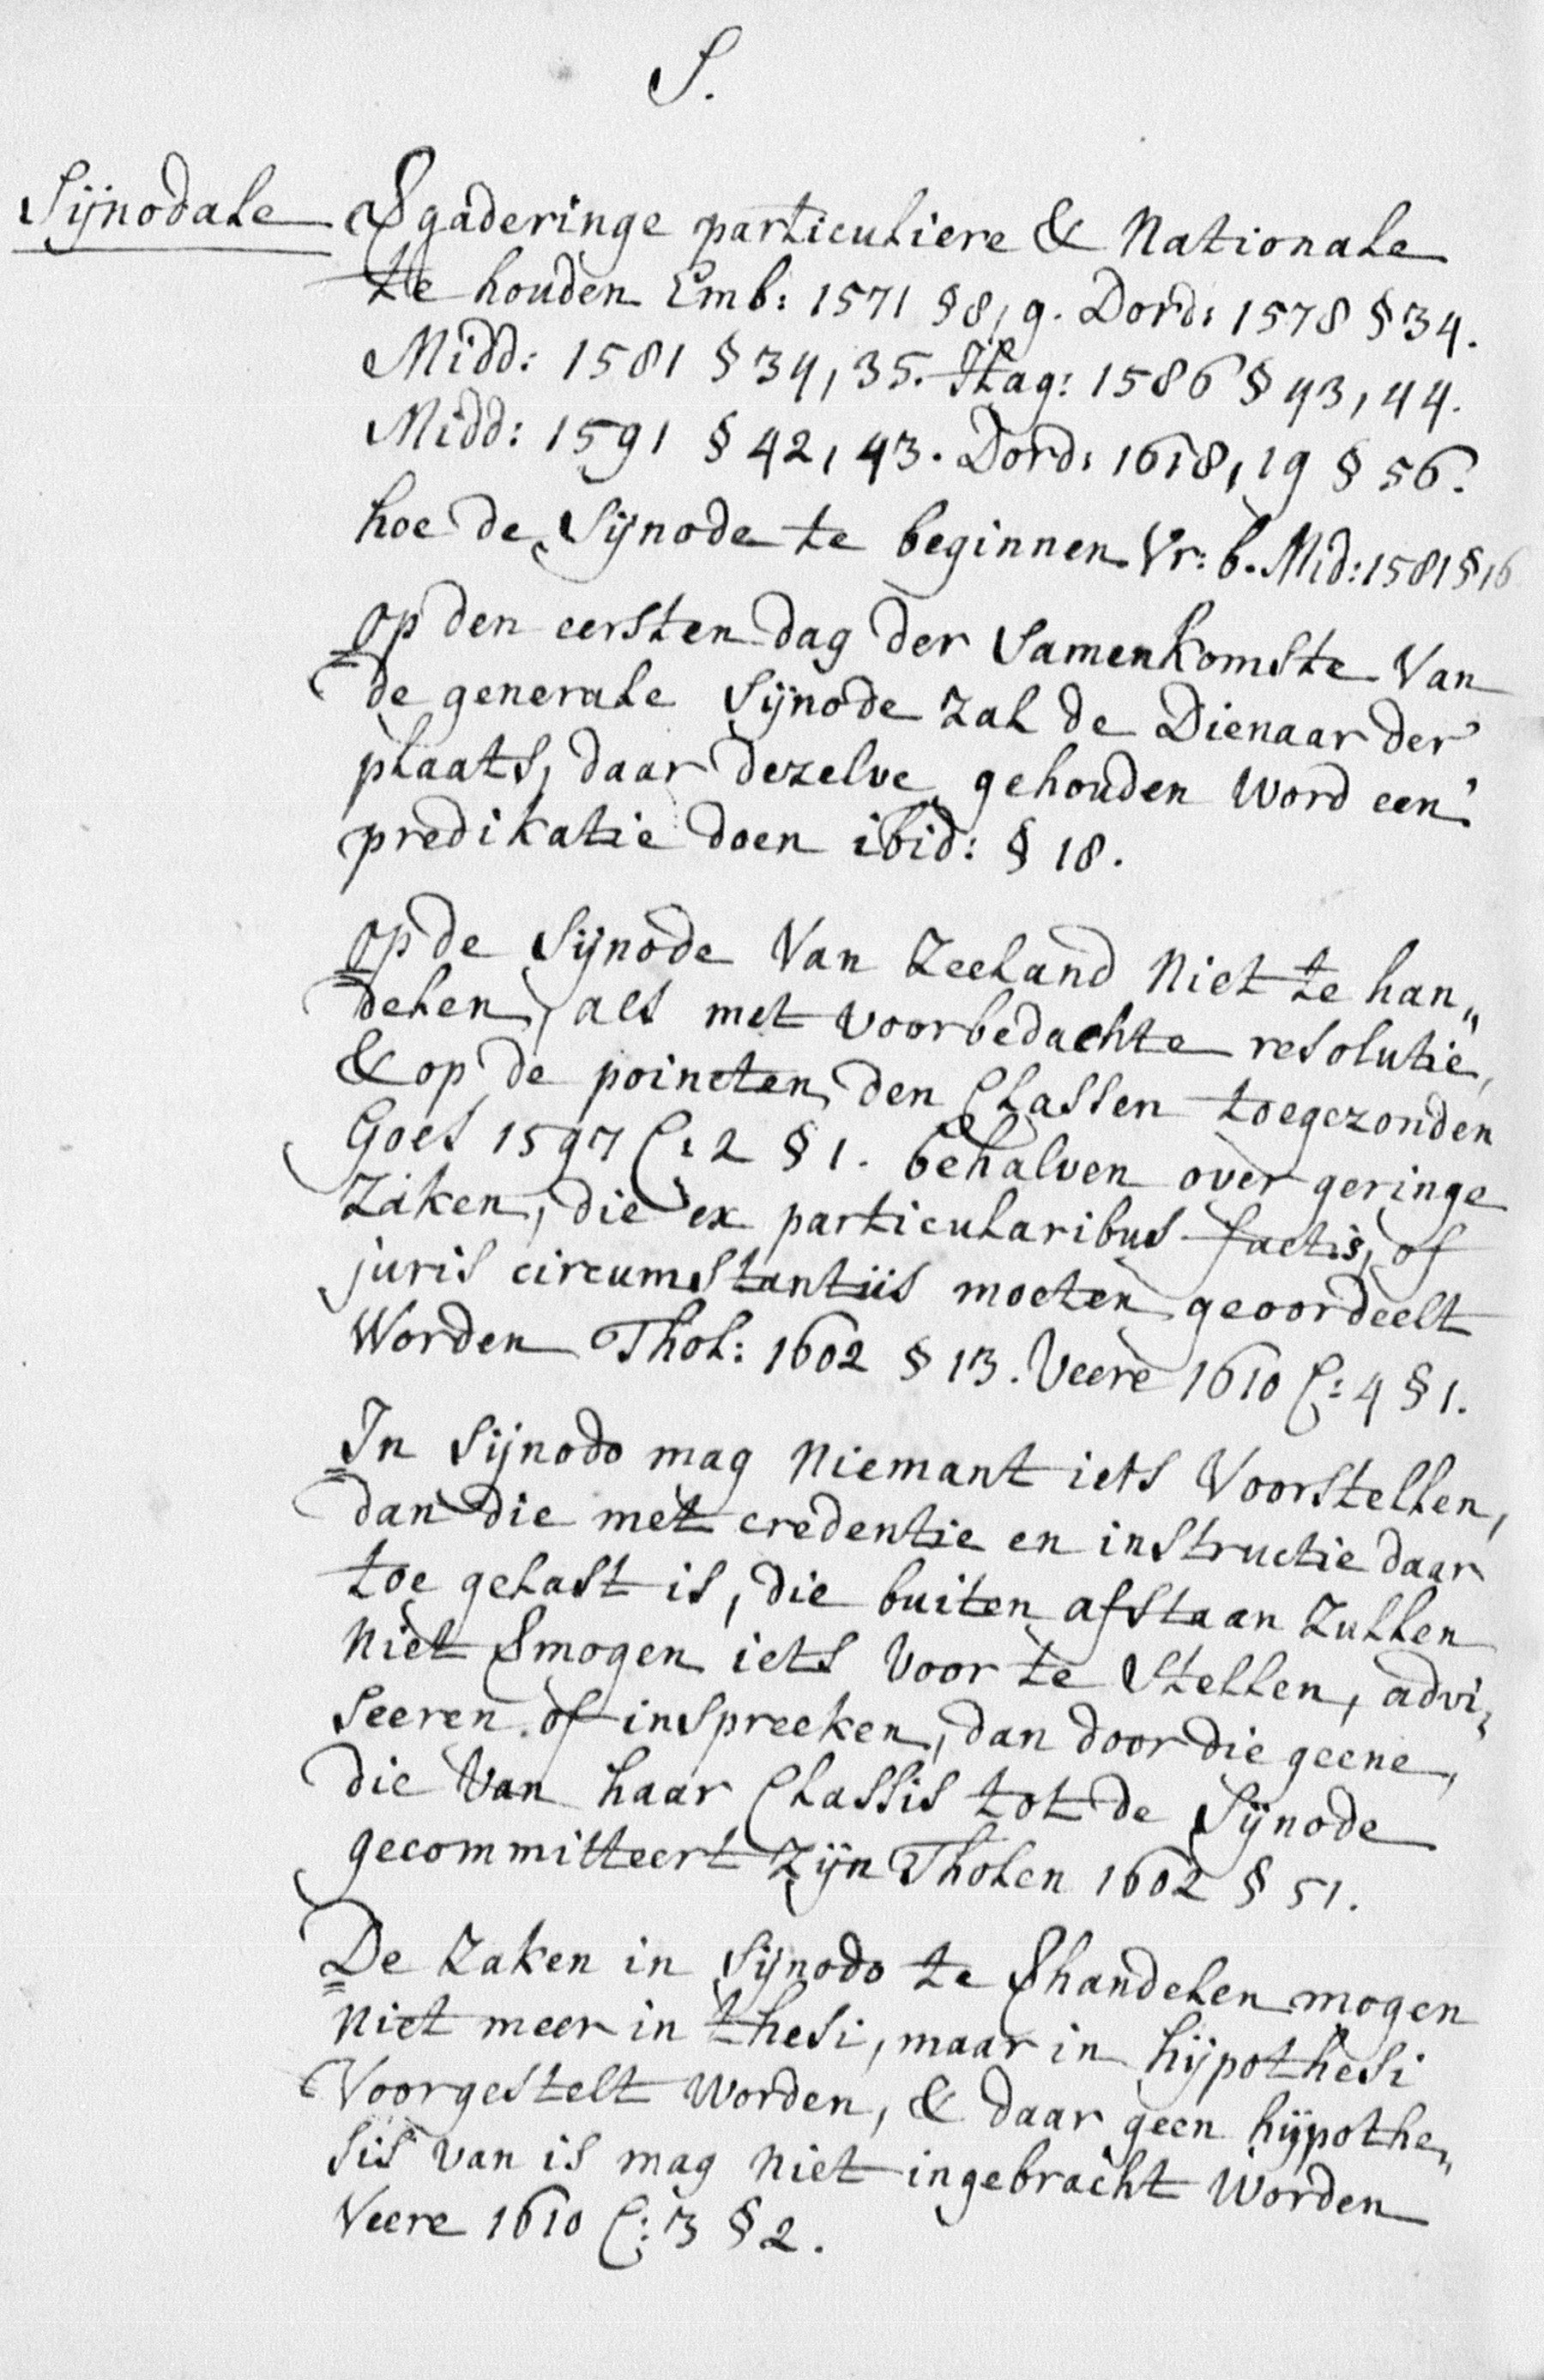 S.
Sijnodale Vgaderinge particuliere & Nationale
te houden Emb: 1571 § 8, 9. Dord: 1578 § 34.
Midd: 1581 § 34, 35. Hag: 1586 § 43, 44.
Midd: 1591 § 42, 43. Dord: 1618, 19 § 56.
hoe de Sijnode te beginnen Vr: b. Mid: 1581 § 16
op den eersten dag der Samenkomste Van
de generale Sijnode zal de Dienaar der
plaats, daar dezelve gehouden word een
predikatie doen ibid: § 18.
op de Sijnode Van Zeeland Niet te han„
delen, als met voorbedachte resolutie,
& op de poincten den Classen toegezonden
Goes 1597 C: 2 § 1. behalven over geringe
Zaken, die ex particularibus factis, of
juris circumstantiis moeten geoordeelt
Worden Thol: 1602 § 13. Veere 1610 C: 4 § 1.
In Sijnodo mag Niemant iets Voorstellen,
dan die met credentie en instructie daar
toe gelast is, die buiten afstaan zullen
Niet Vmogen iets Voor te Stellen, advi„
seeren of inspreeken, dan door die geene,
die Van haar Classis tot de Sijnode
gecommitteert Zijn Tholen 1602 § 51.
De Zaken in Sijnodo te Vhandelen mogen
Niet meer in thesi, maar in hijpothesi
Voorgestelt worden, & daar geen hijpothe„
sis van is mag Niet ingebracht Worden
Veere 1610 C: 3 § 2.